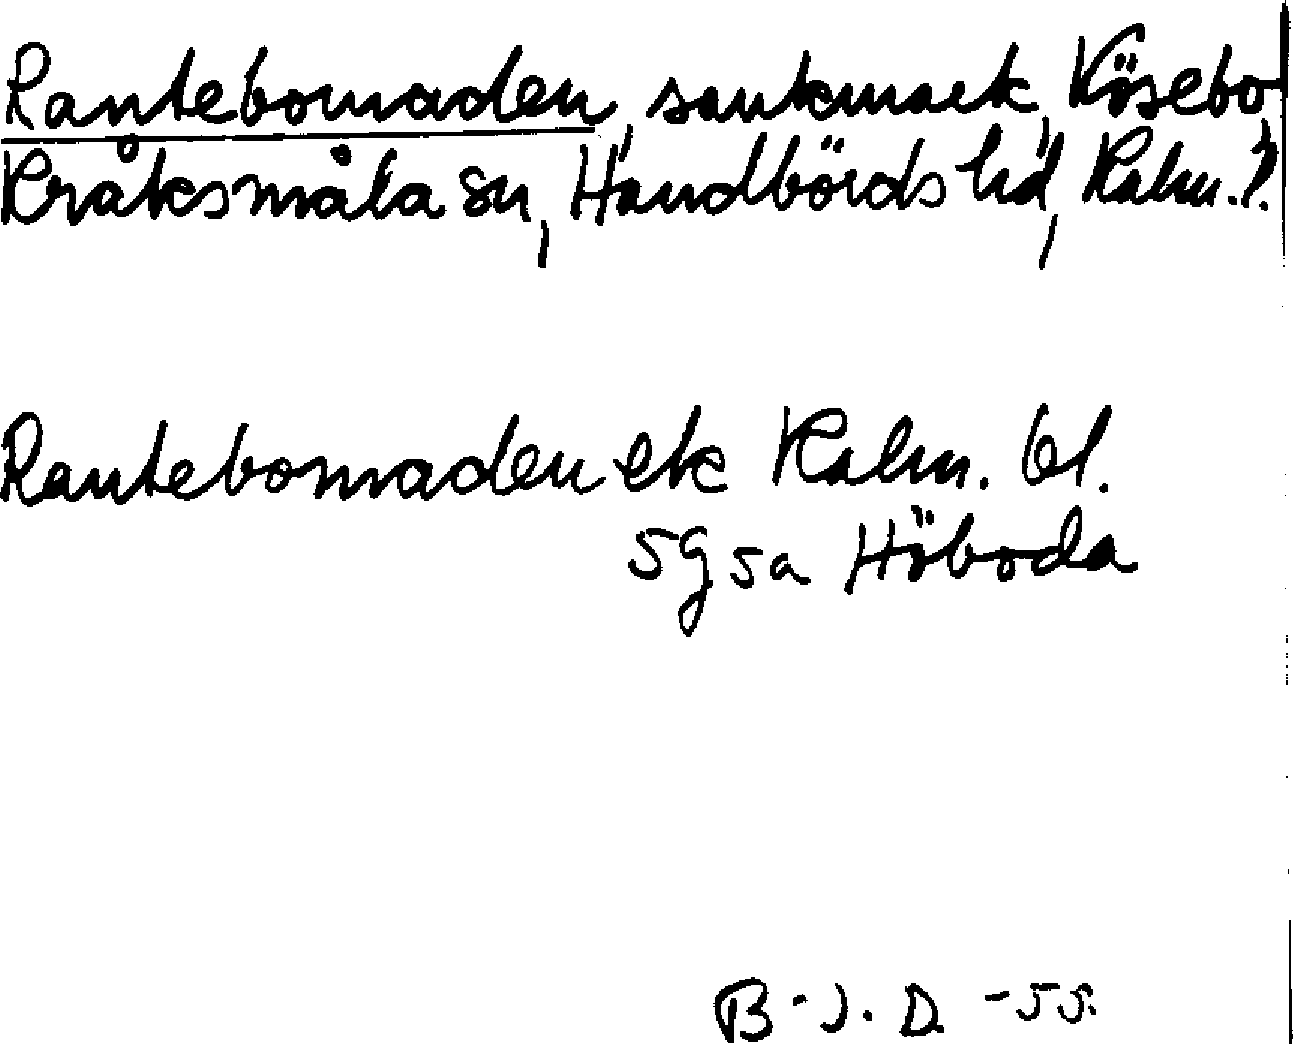 Rantebomaden, sankmark, Kösebo,
Kråksmåla sn, Handbörds hd, Kalm. l.
Rantebomaden ek Kalm. bl.
5g5a Höboda
B-J. D. -55.